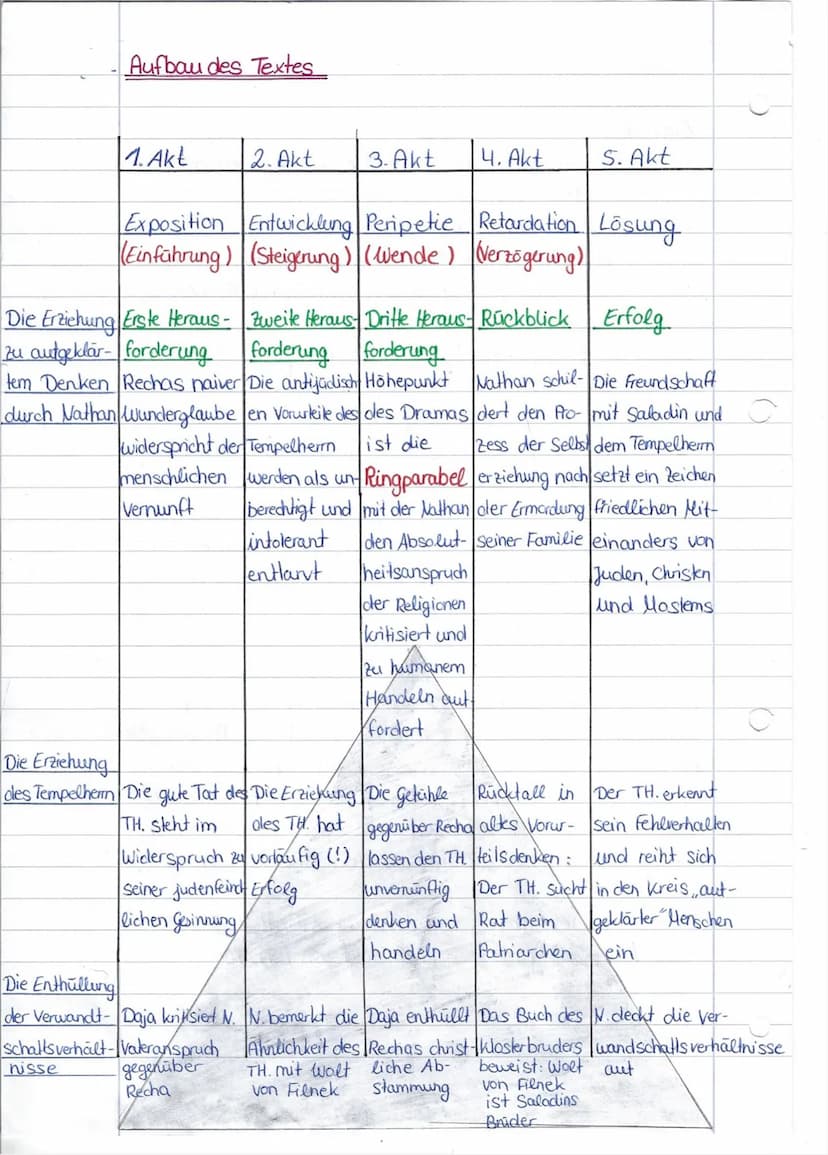 Aufbau des Textes
1. Akt 2. Akt 3. Akt 4. Akt 5. Akt
Exposition Entwicklung Peripetie Retardation Lösung
(Einführung) (Steigerung) (Wende) (Verzögerung)
Die Erziehung Erste Heraus- Zweite Heraus- Dritte Heraus- Rückblick Erfolg
zu aufgeklär- forderung forderung forderung
tem Denken Rechas naiver Die antijüdisch Höhepunkt Nathan schil- Die Freundschaft
durch Nathan Wunderglaube en Vorurteile des des Dramas dert den Pro- mit Saladin und
widerspricht der Tempelherrn ist die zess der Selbst dem Tempelherrn
menschlichen werden als un- Ringparabel erziehung nach setzt ein Zeichen
Vernunft berechtigt und mit der Nathan der Ermordung friedlichen Mit-
intolerant den Absolut- seiner Familie einanders von
entlarvt heitsanspruch Juden, Christen
der Religionen und Moslems
kritisiert und
zu humanem
Handeln auf-
fordert
Die Erziehung
des Tempelherrn Die gute Tat des Die Erziehung Die Gefühle Rückfall in Der TH. erkennt
TH. steht im des TH. hat gegenüber Recha altes Vorur- sein Fehlverhalten
Widerspruch zu vorläufig (!) lassen den TH. teilsdenken: und reiht sich
seiner judenfeind Erfolg unvernünftig Der TH. sucht in den Kreis „auf-
lichen Gesinnung denken und Rat beim geklärter" Menschen
handeln Patriarchen ein
Die Enthüllung
der Verwandt- Daja kritisiert N. N. bemerkt die Daja enthüllt Das Buch des N. deckt die Ver-
schaftsverhält- Vateranspruch Ähnlichkeit des Rechas christ- Klosterbruders wandschaftsverhältnisse
nisse gegenüber TH. mit Wolf liche Ab- beweist: Wolf auf
Recha von Filnek stammung von Filnek
ist Saladins
Bruder